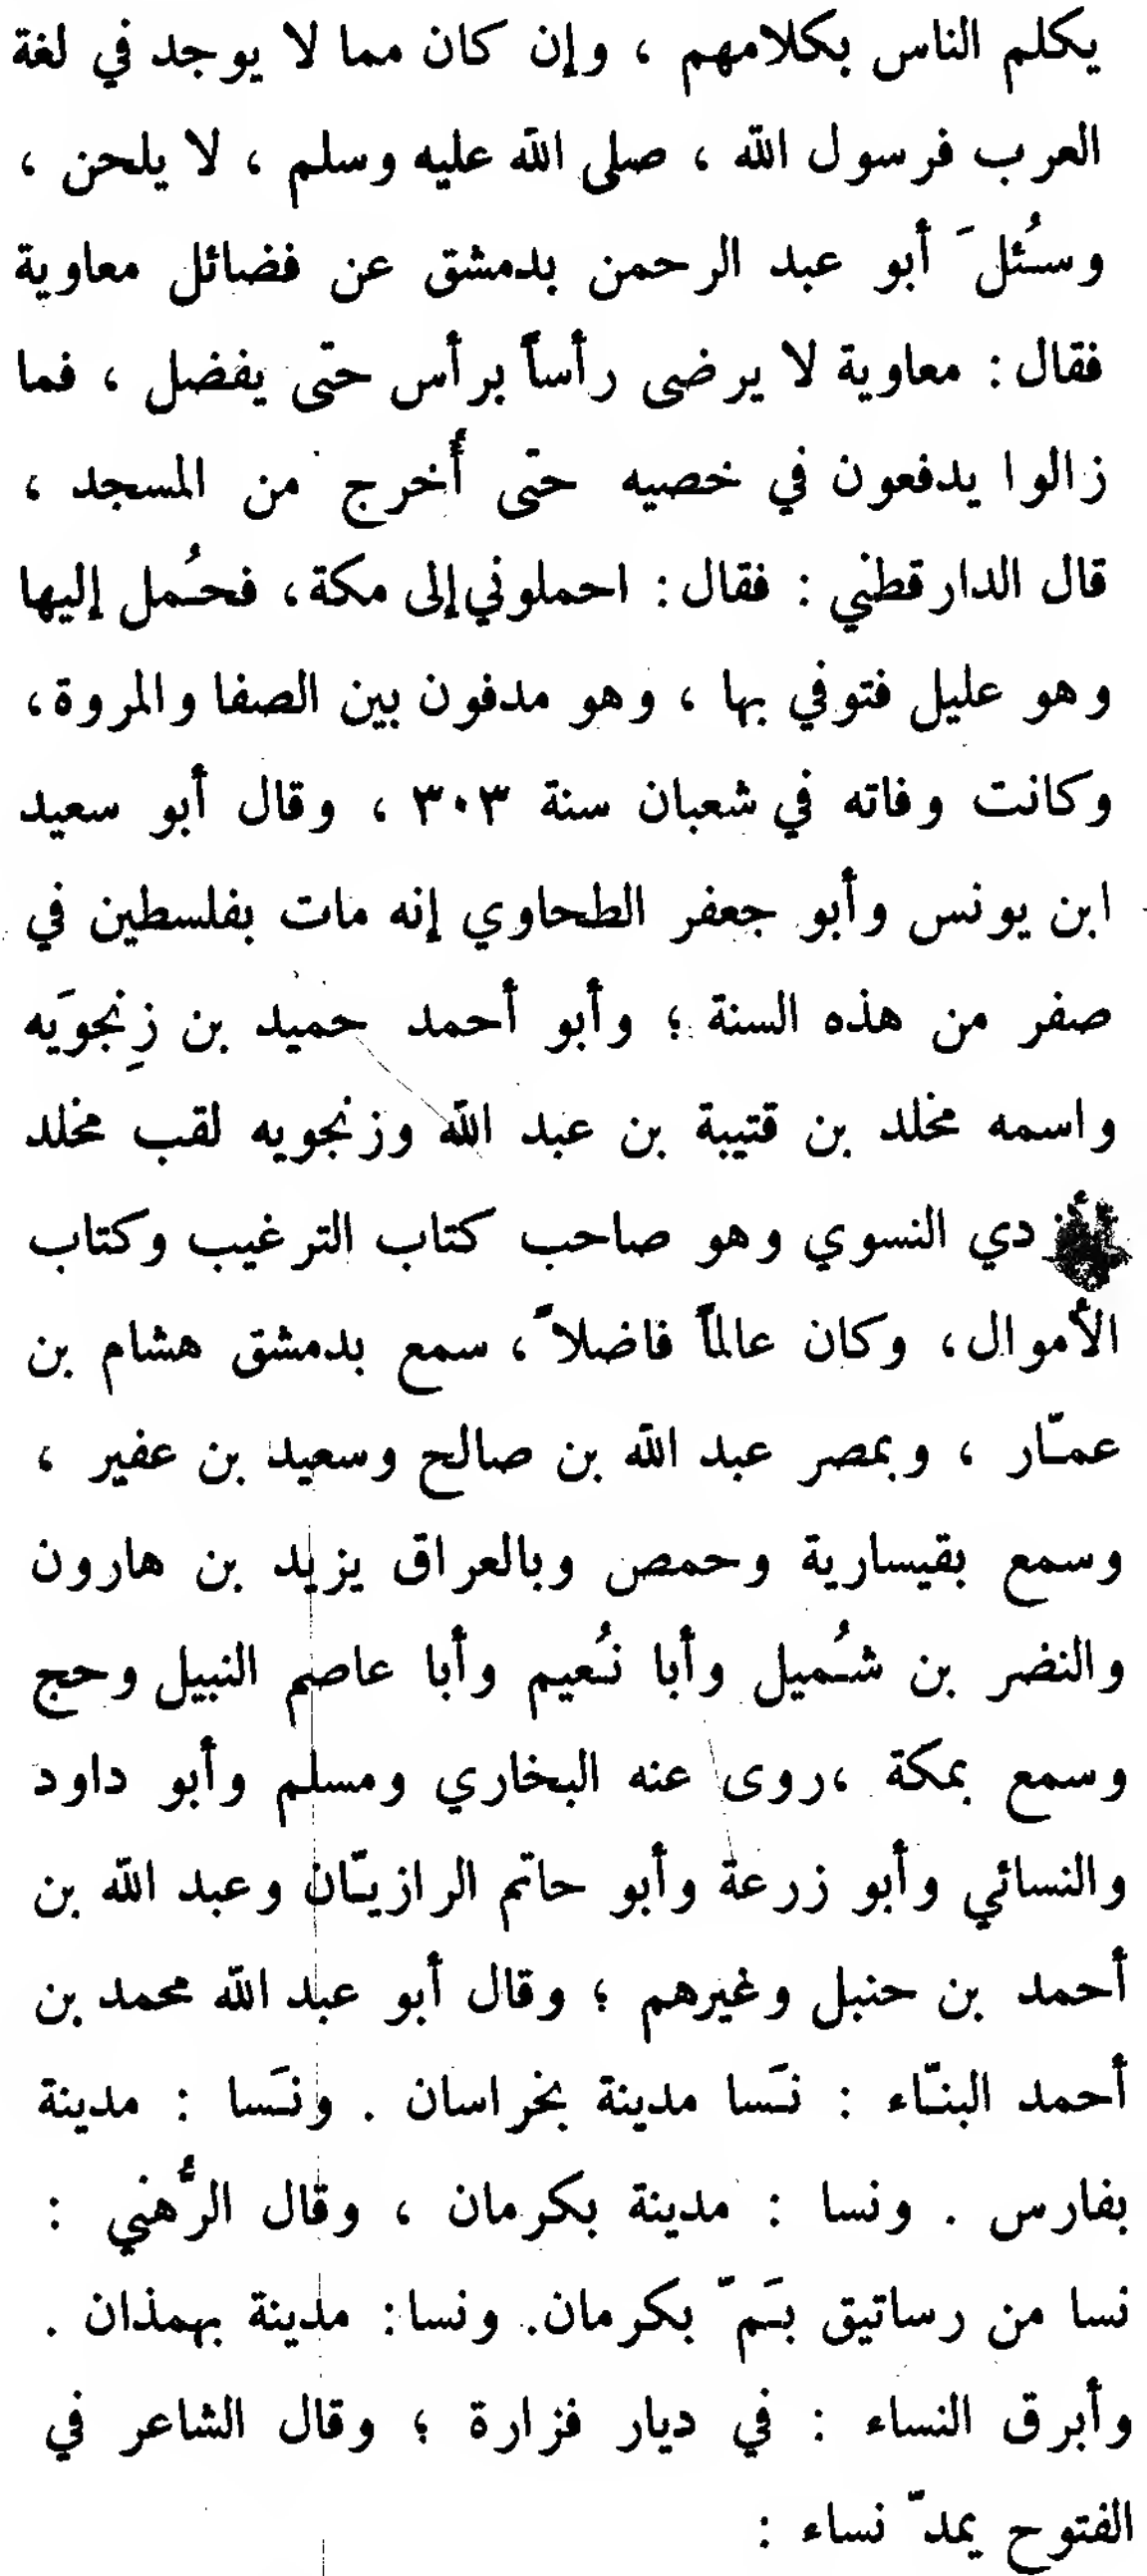 يكلم الناس بكلامهم ، وإن كان مما لا يوجد في لغة
العرب فرسول الله ، صلى الله عليه وسلم ، لا يلحن ،
وسُئلَ أبو عبد الرحمن بدمشق عن فضائل معاوية
فقال : معاوية لا يرضى رأساً برأس حتى يفضل ، فما
زالوا يدفعون في خصيه حتى أُخرج من المسجد ،
قال الدارقطني : فقال : احملوني إلى مكة ، فحُمل إليها
وهو عليل فتوفي بها ، وهو مدفون بين الصفا والمروة ،
وكانت وفاته في شعبان سنة ٣٠٣ ، وقال أبو سعيد
ابن يونس وأبو جعفر الطحاوي إنه مات بفلسطين في
صفر من هذه السنة ؛ وأبو أحمد حميد بن زِنجوَيه
واسمه مخلد بن قتيبة بن عبد الله وزنجويه لقب مخلد
دي النسوي وهو صاحب كتاب الترغيب وكتاب
الأموال ، وكان عالماً فاضلاً ، سمع بدمشق هشام بن
عمّار ، وبمصر عبد الله بن صالح وسعيد بن عفير ،
وسمع بقيسارية وحمص وبالعراق يزيد بن هارون
والنضر بن شُميل وأبا نُعيم وأبا عاصم النبيل وحج
وسمع بمكة ، روى عنه البخاري ومسلم وأبو داود
والنسائي وأبو زرعة وأبو حاتم الرازيّان وعبد الله بن
أحمد بن حنبل وغيرهم ؛ وقال أبو عبد الله محمد بن
أحمد البنّاء : نَسا مدينة بخراسان . ونَسا : مدينة
بفارس . ونسا : مدينة بكرمان ، وقال الرُّهني :
نسا من رساتيق بَمّ بكرمان . ونسا : مدينة بهمذان .
وأبرق النساء : في ديار فزارة ؛ وقال الشاعر في
الفتوح يمدّ نساء :